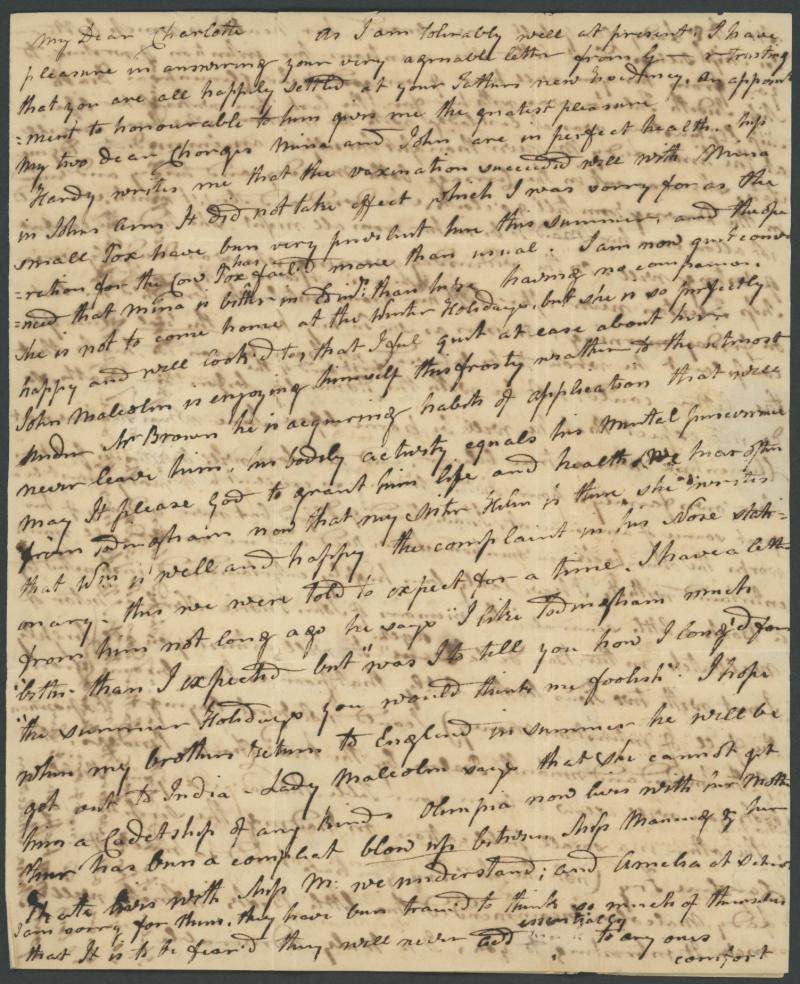 My Dear Charlotte As I am tolirably well at present, I have
pleasure in answering your very agreable letter from G— & trusting
that you are all happily settled at your Fathers new Residency. an appoint
=ment so honourable to him gives me the greatest pleasure
My two Dear Chorges Mina and John are in perfect health. Miss
Hardy writes me that the vaxination succeeded will with Mina
in Johns arm It did not take effect which I was sorry for as the
small Pox have bun very privelent here this summer, and the ope
=ration for the Cow Pox has fail'd more than usual. I am now quit convin
=ned that Mina is bitter in Edinr. than here having no companion.
she is not to come home at the Winter Holidays, but she is so perfectly
happy and well look'd to, that I ful quit at ease about her
John Malcolm is enjoying himself this frosty weather to the utmost
under Mr Brown he is acquiring habits of application that will
never leave him, his bodily activity equals his mental
may It please God to grant him life and health, We hear often
from Todingham now that my sister Helen is there, she writes
that Wm is well and happy the complaint in his Nose stati=
onary - this we were told to expect for a time. I have a lettr
from him not long ago he says "I like Todingham much
"bitter than I expected but "was I to tell you how I long'd for
"the summer Holidays you would think me foolish". I hope
when my brothers return to England in summer he will be
got out to India - Lady Malcolm says that she cannot get
him a Cadetship of any kind Olimpia now lives with her Moth
ther has bun a compleat blow up between Miss Manung & her
Kate lives with Miss M: we understand; and Amelia at school
I am sorry for them, they have bun train'd to think so much of themselves
that It is to be fear'd they will never add essentially to any ones
comfort